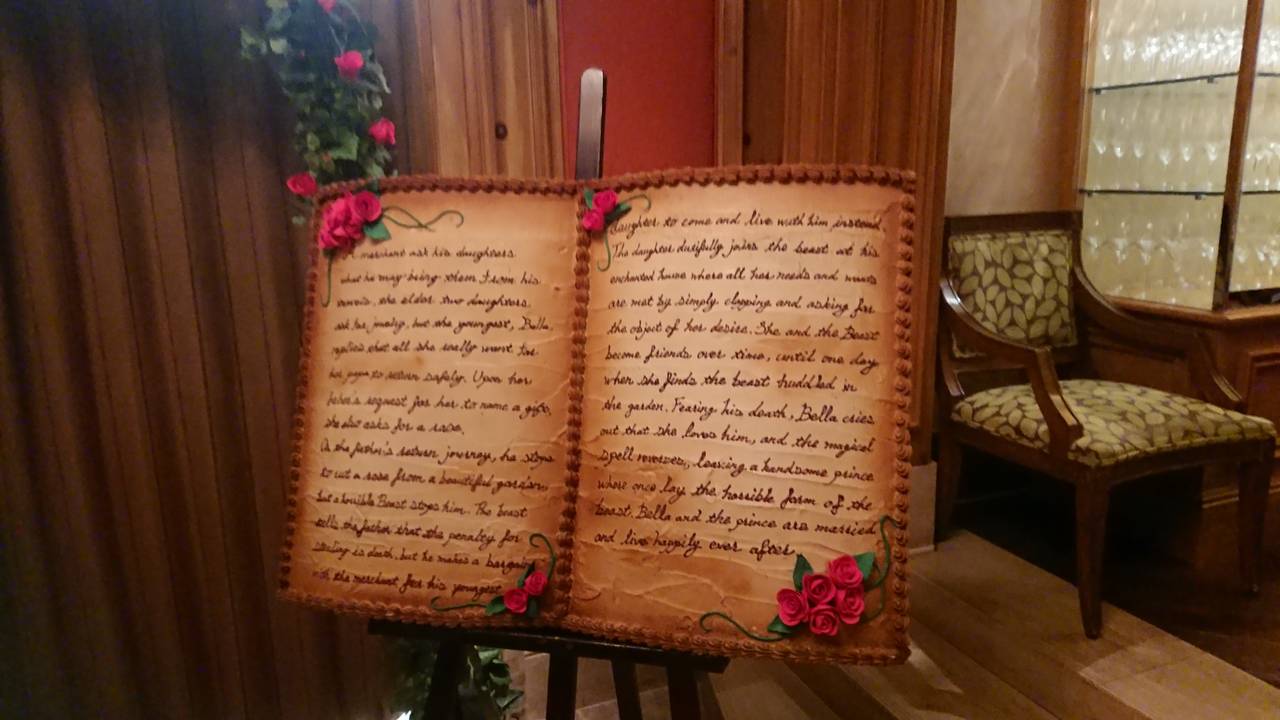 merchant ask his daughters
what he may bring them From his
travels, the elder two daughters
ask for jewelry, but the youngest, Bella,
replies that all she really want for
her papa to return safely. Upon her
father's request for her to name a gift,
she also asks for a rose.
On the father's return journey, he stops
to cut a rose from a beautiful garden,
but a horrible Beast stops him. The beast
tells the father that the penalty for
stealing is death, but he makes a bargain
with the merchant for his youngest
daughter to come and live with him instead
The daughter dutifully joins the beast at his
enchanted house where all her needs and wants
are met by simply clapping and asking for
the object of her desire. She and the Beast
become friends over time, until one day
when she finds the beast huddled in
the garden. Fearing his death, Bella cries
out that she loves him, and the magical
spell reverses, leaving a handsome prince
where once lay the horrible form of the
beast. Bella and the prince are married
and live happily ever after